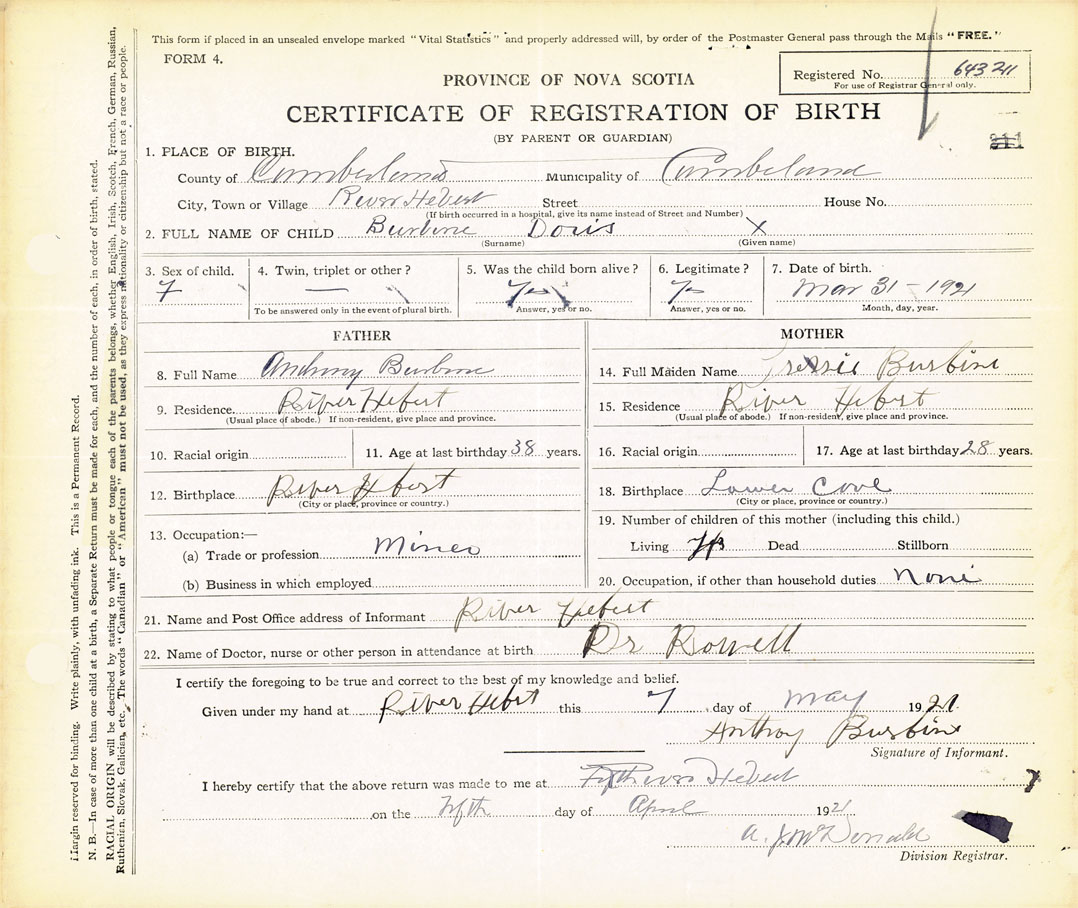 This form if placed in an unsealed envelope marked "Vital Statistics" and properly addressed will, by order of the Postmaster General pass through the Mails "FREE."
FORM 4.
PROVINCE OF NOVA SCOTIA
Registered No. 643211
For use of Registrar General only.
CERTIFICATE OF REGISTRATION OF BIRTH
(BY PARENT OR GUARDIAN)
211
1. PLACE OF BIRTH.
County of Cumberland Municipality of Cumbeland
City, Town or Village River Hebert Street House No.
(If birth occurred in a hospital, give its name instead of Street and Number)
2. FULL NAME OF CHILD Burbine Doris X
(Surname) (Given name)
3. Sex of child. 4. Twin, triplet or other? 5. Was the child born alive? 6. Legitimate? 7. Date of birth.
F — Yes Mar 31 - 1921
To be answered only in the event of plural birth. Answer, yes or no. Answer, yes or no. Month, day, year.
FATHER MOTHER
8. Full Name Anthony Burbine 14. Full Maiden Name Burbine
9. Residence River Hebert 15. Residence River Hebert
(Usual place of abode.) If non-resident, give place and province. (Usual place of abode.) If non-resident, give place and province.
10. Racial origin 11. Age at last birthday 38 years. 16. Racial origin 17. Age at last birthday 28 years.
12. Birthplace River Hebert 18. Birthplace Lower Cove
(City or place, province or country.) (City or place, province or country.)
13. Occupation:— 19. Number of children of this mother (including this child.)
(a) Trade or profession Miner Living Dead Stillborn
(b) Business in which employed 20. Occupation, if other than household duties None
21. Name and Post Office address of Informant River Hebert
22. Name of Doctor, nurse or other person in attendance at birth Dr Rowell
I certify the foregoing to be true and correct to the best of my knowledge and belief.
Given under my hand at River Hebert this 7 day of May 1921.
Anthoy Burbine
Signature of Informant.
I hereby certify that the above return was made to me at River Hebert
on the fifth day of April 1921
A. J. McDonald
Division Registrar.
Margin reserved for binding. Write plainly, with unfading ink. This is a Permanent Record.
N. B.—In case of more than one child at a birth, a Separate Return must be made for each, and the number of each, in order of birth, stated.
RACIAL ORIGIN will be described by stating to what people or tongue each of the parents belongs, whether English, Irish, Scotch, French, German, Russian,
Ruthenian, Slovak, Galician, etc. The words "Canadian" or "American" must not be used, as they express nationality or citizenship but not a race or people.